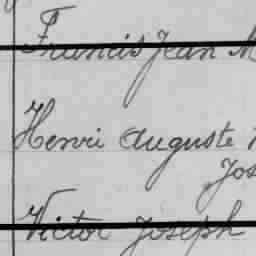 Francis Jean
Henri Auguste
Jos
Victor Joseph